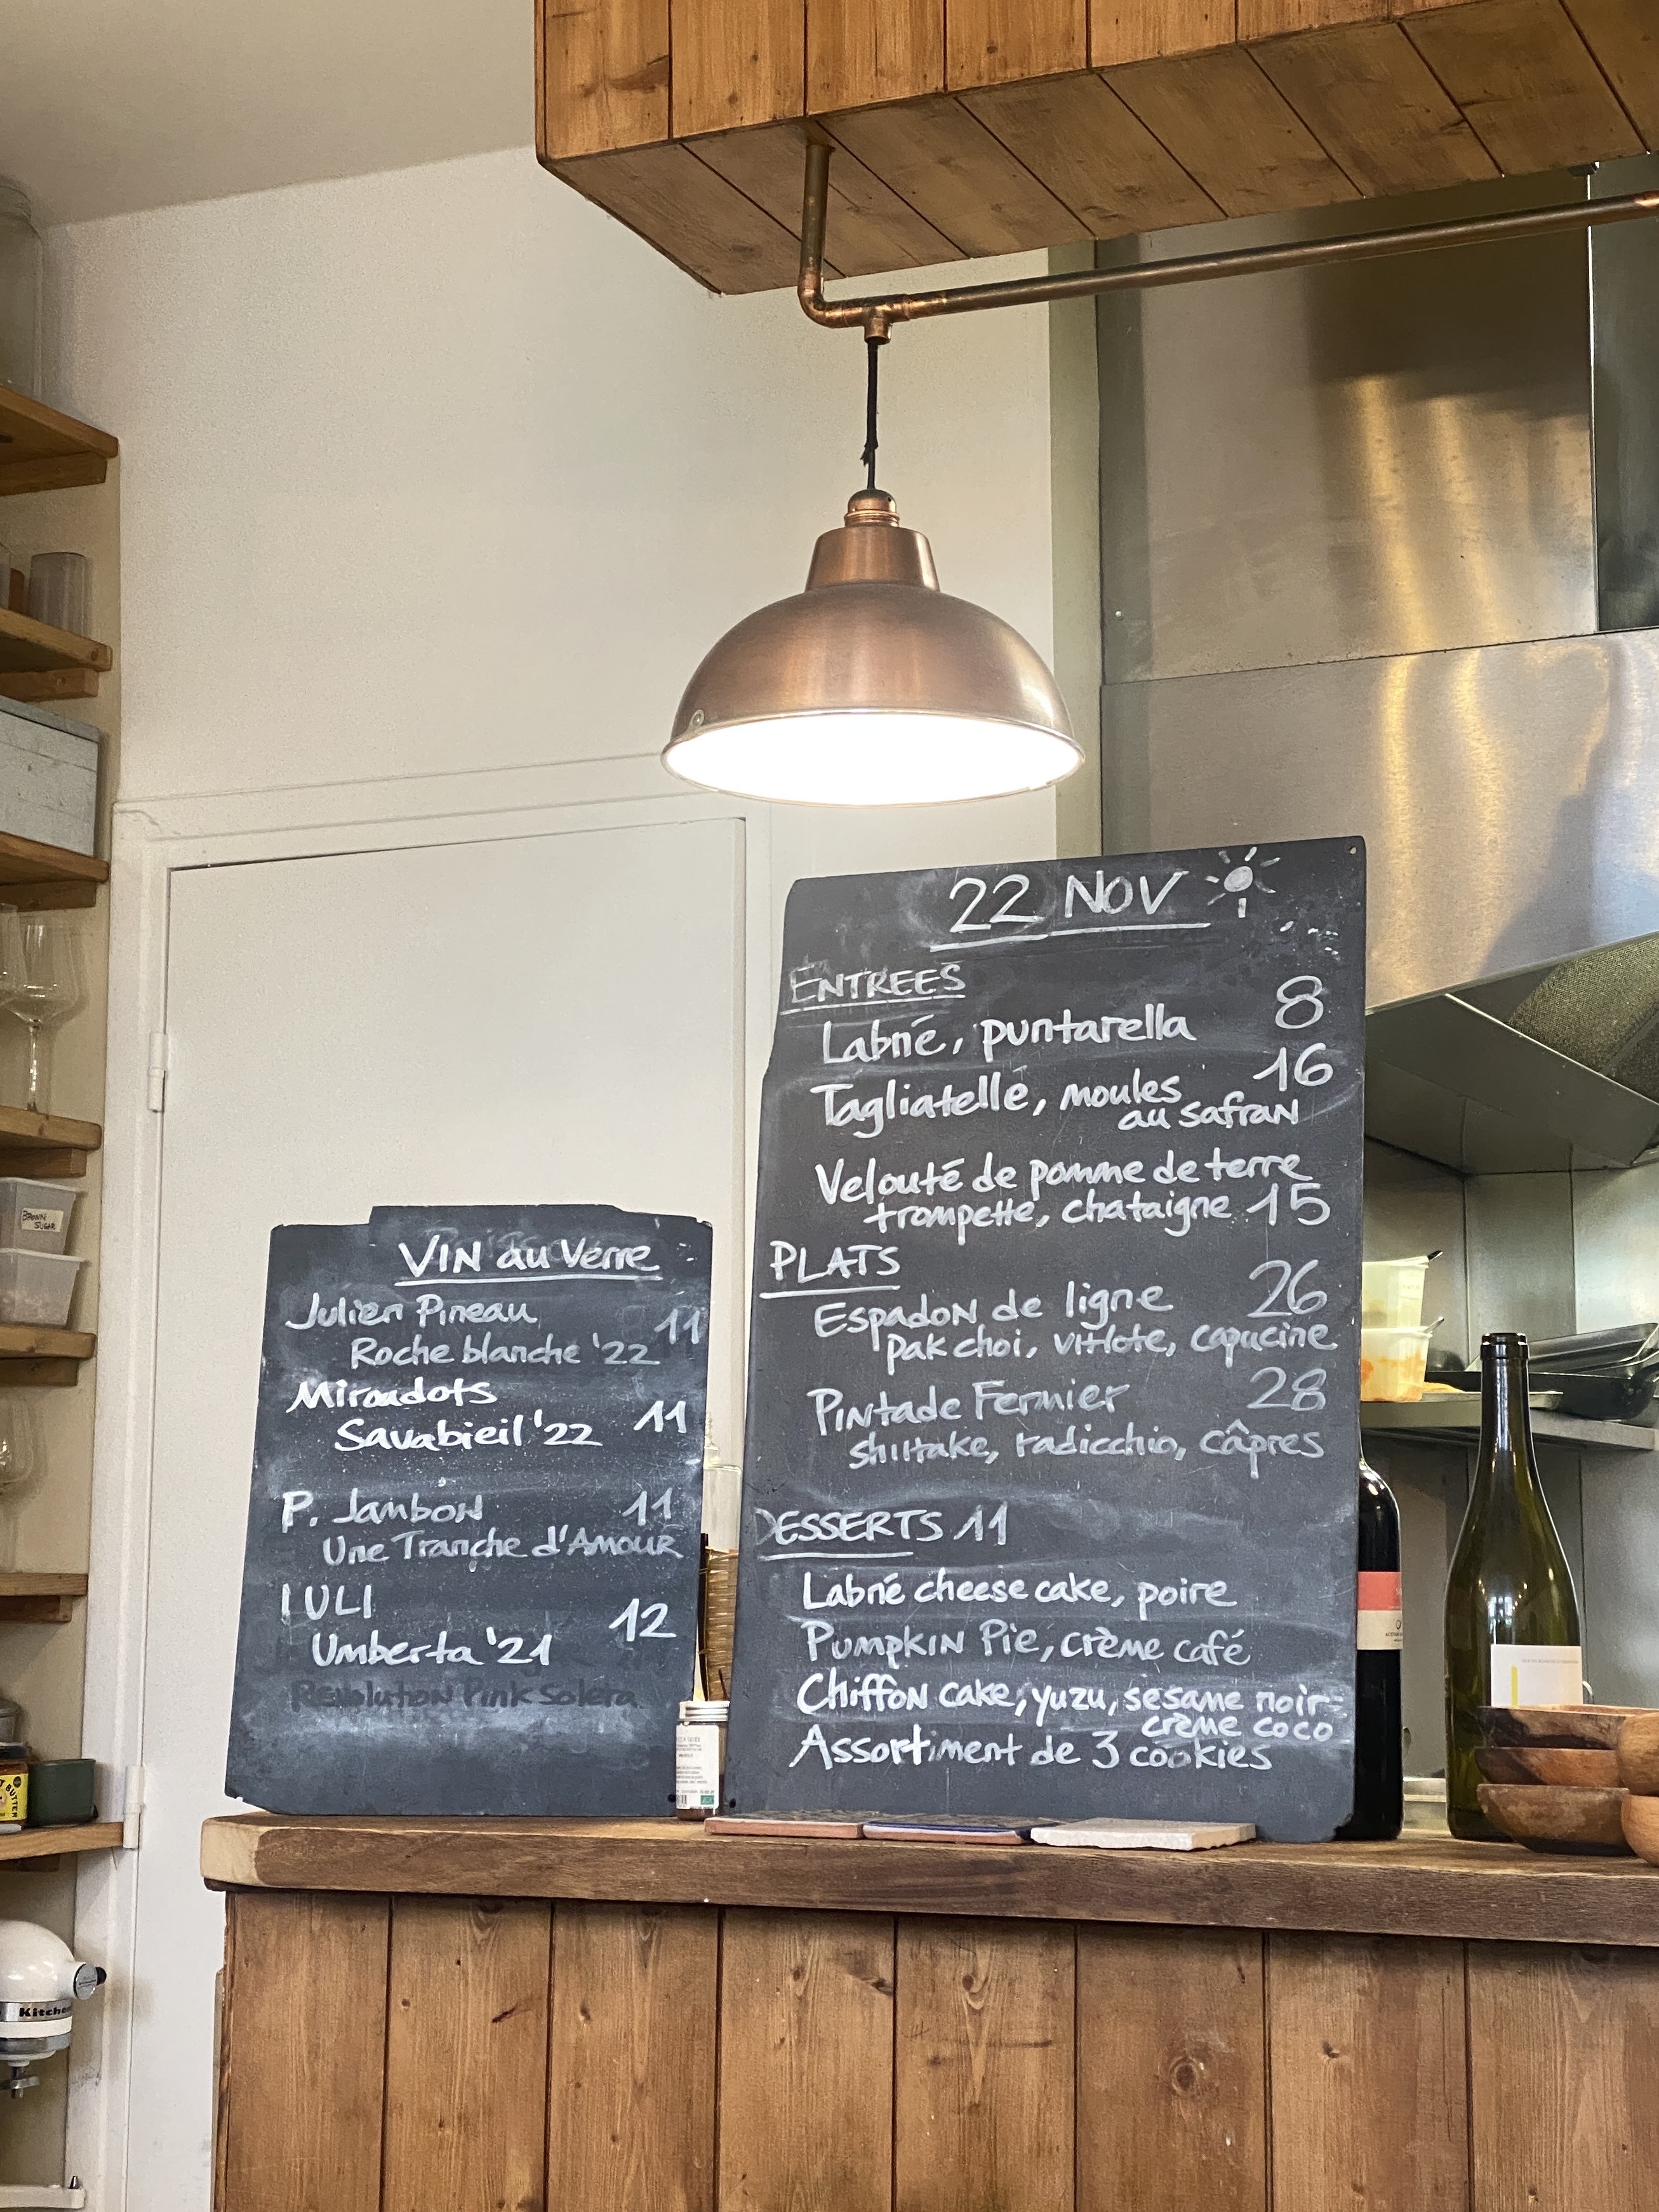 VIN au Verre
Julien Pineau 11
Roche blanche '22
Miroadots
Savabieil '22 11
P. Jambon 11
Une Tranche d'Amour
IULI
Umberta '21 12
Revolution Pink Solera
22 NOV
ENTREES
Labné, puntarella 8
Tagliatelle, moules 16
au safran
Velouté de pomme de terre
trompette, chataigne 15
PLATS
Espadon de ligne 26
pak choi, vitlote, capucine
Pintade Fermier 28
shiitake, radicchio, câpres
DESSERTS 11
Labné cheese cake, poire
Pumpkin Pie, crème café
Chiffon cake, yuzu, sesame noir
crème coco
Assortiment de 3 cookies
BROWN
SUGAR
BUTTER
Kitche